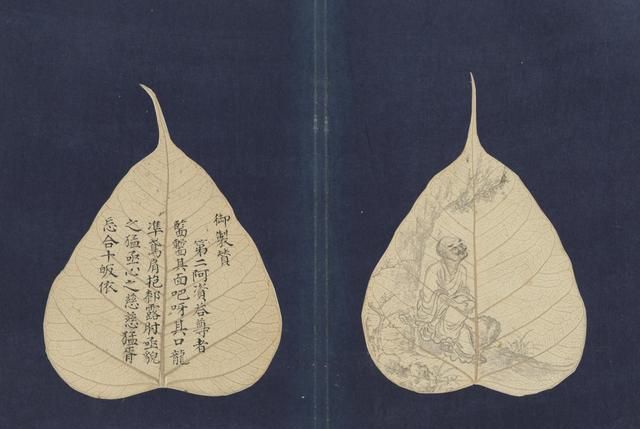 御製贊
第二阿資荅尊者
其面吧呀其口龍
準鳶肩抱露肘丞貌
之猛丞心之慈慈猛胥
忘合十皈依